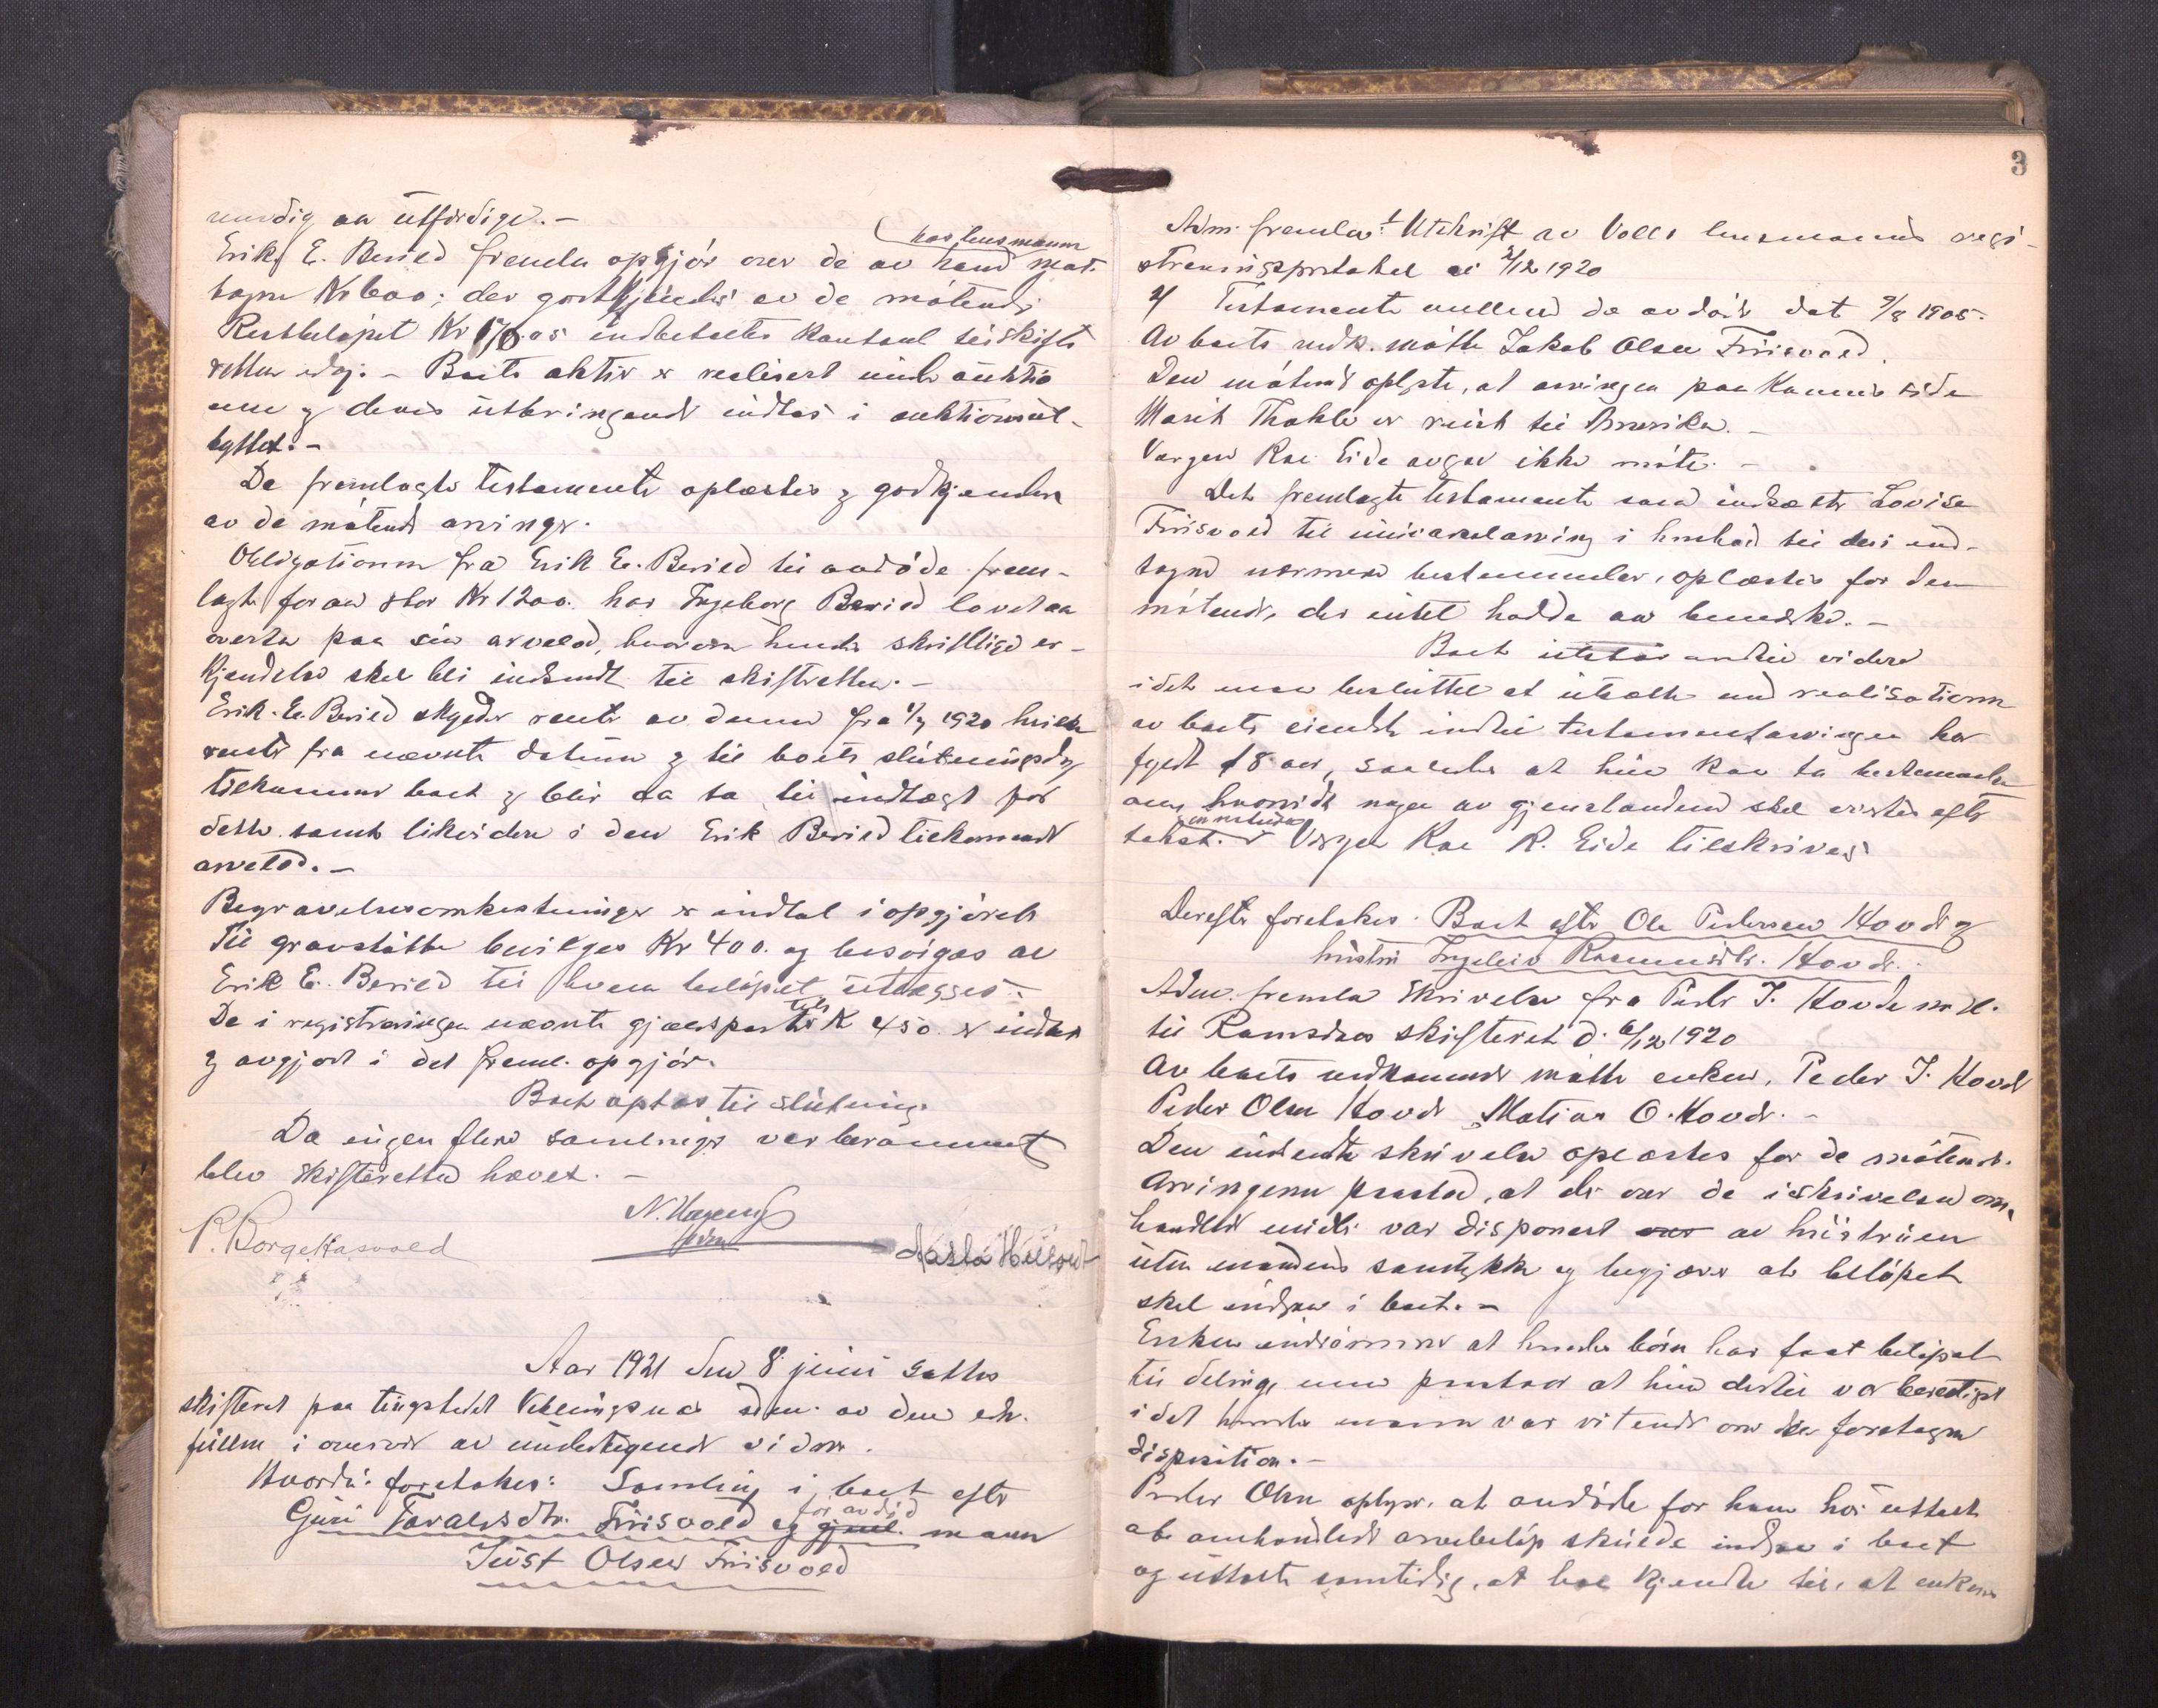 nødig aa utfærdige. -
Erik E. Beried fremla opgjør over de av ham mot-
hos lensmann
tagne Kr 600; der godkjendes av de møtende
Restbeløpet Kr 170.05 indbetaltes kontant til skifte
retten idag. - Boets aktiv er realisert under auktio
nen og denes utbringende indtas i auktionsut-
byttet. -
De fremlagte testamente oplæstes og godkjendtes
av de møtende arvinger.
Obligationen fra Erik E. Beried til avdøde frem-
lagt for av stor Kr 1200. har Ingeborg Beried lovet aa
overta paa sin arvelod, hvorom hendes skriftlige er-
kjendelse skal bli indsendt til skifteretten. -
Erik E. Beried skylder rente av denne fra 1/7 1920 hvilken
rente fra nævnte datum og til boets slutningsdag
tilkommer boet og blir aa ta til indtægt for
dette samt likvidere i den Erik Beried tilkommende
arvelod. -
Begravelsesomkostninger er indtat i opgjøret
Til gravstøtte bevilges Kr 400. og besørges av
Erik E. Beried til hvem beløpet utlægges.
De i registreringen nævnte gjældsposter K 450. er indtat
og avgjort i det freml. opgjør.
Boet optas til slutning.
Da ingen flere samlinger var berammet
blev skifteretten hævet. -
P. Borge Hasvold
Aar 1921 den 8 juni sattes
skifteret paa tingstedet Vællingsnæs adm. av den edv.
fuldm i overvær av undertegnede vidner.
Hvorda: foretokes: Samling i boet efter
for avdød
Guri Tovaldsdtr. Friisvold og gjenl. mann
Just Olsen Friisvold
3
Adm. fremla: 1 Utskrift av Volls lensmannds regi-
streringsprotokol av 2/12 1920
2/ Testamente mellem de avdøde dat 9/8 1905.
Av boets vedk. møtte Jakob Olsen Friisvold.
Den møtende oplyste, at arvingen paa Konens side
Marit Thokle er reist til Amerika. -
Vergen Roe Eide avgav ikke møte. -
Det fremlagte testamente som indsætter Lovise
Friisvold til universalarving i henhold til deri ind-
tagne nærmere bestemmelser, oplæstes for den
møtende, der intet hadde aa bemerke. -
Boet utstaar indtil videre
idet man besluttet at utsætte med realisationen
av boets eiendele indtil testamentarvingen har
fyldt 18 aar, saaledes at hun kan ta bestemmelse
om hvorvidt nogen av gjenstandene skal avstaaes efter
takst. - Vergen Roe R. Eide tilskrives
Derefter foretokes: Boet efter Ole Pedersen Hovde og
hustru Ingeleiv Rasmusdtr. Hovde.
Adm. fremla skrivelse fra Peder J. Hovde m. fl.
til Romsdals skifteret d. 6/12 1920
Av boets vedkommende møtte enken, Peder J. Hovde
Peder Olsen Hovde Matias O. Hovde. -
Den indsendte skrivelse oplæstes for de møtende.
Arvingerne paastod, at der over de i skrivelsen om-
handlede midler var disponert over av hustruen
uten mandens samtykke og begjærer at beløpet
skal indgaa i boet. -
Enken indrømmer at hendes børn har faat beløpet
til deling, men paastaar at hun dertil var berettiget
idet hendes mann var vitende om den foretagne
disposition. -
Peder Olsen oplyser, at avdøde for ham har uttalt
at omhandlede arvebeløp skulde indgaa i boet
og uttalte samtidig, at han kjendte til, at enken